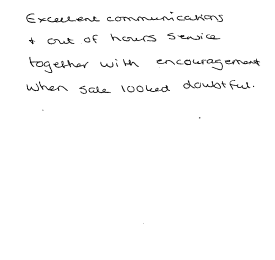 Excellent communications
+ out of hours service
together with encouragement
when sale looked doubtful.